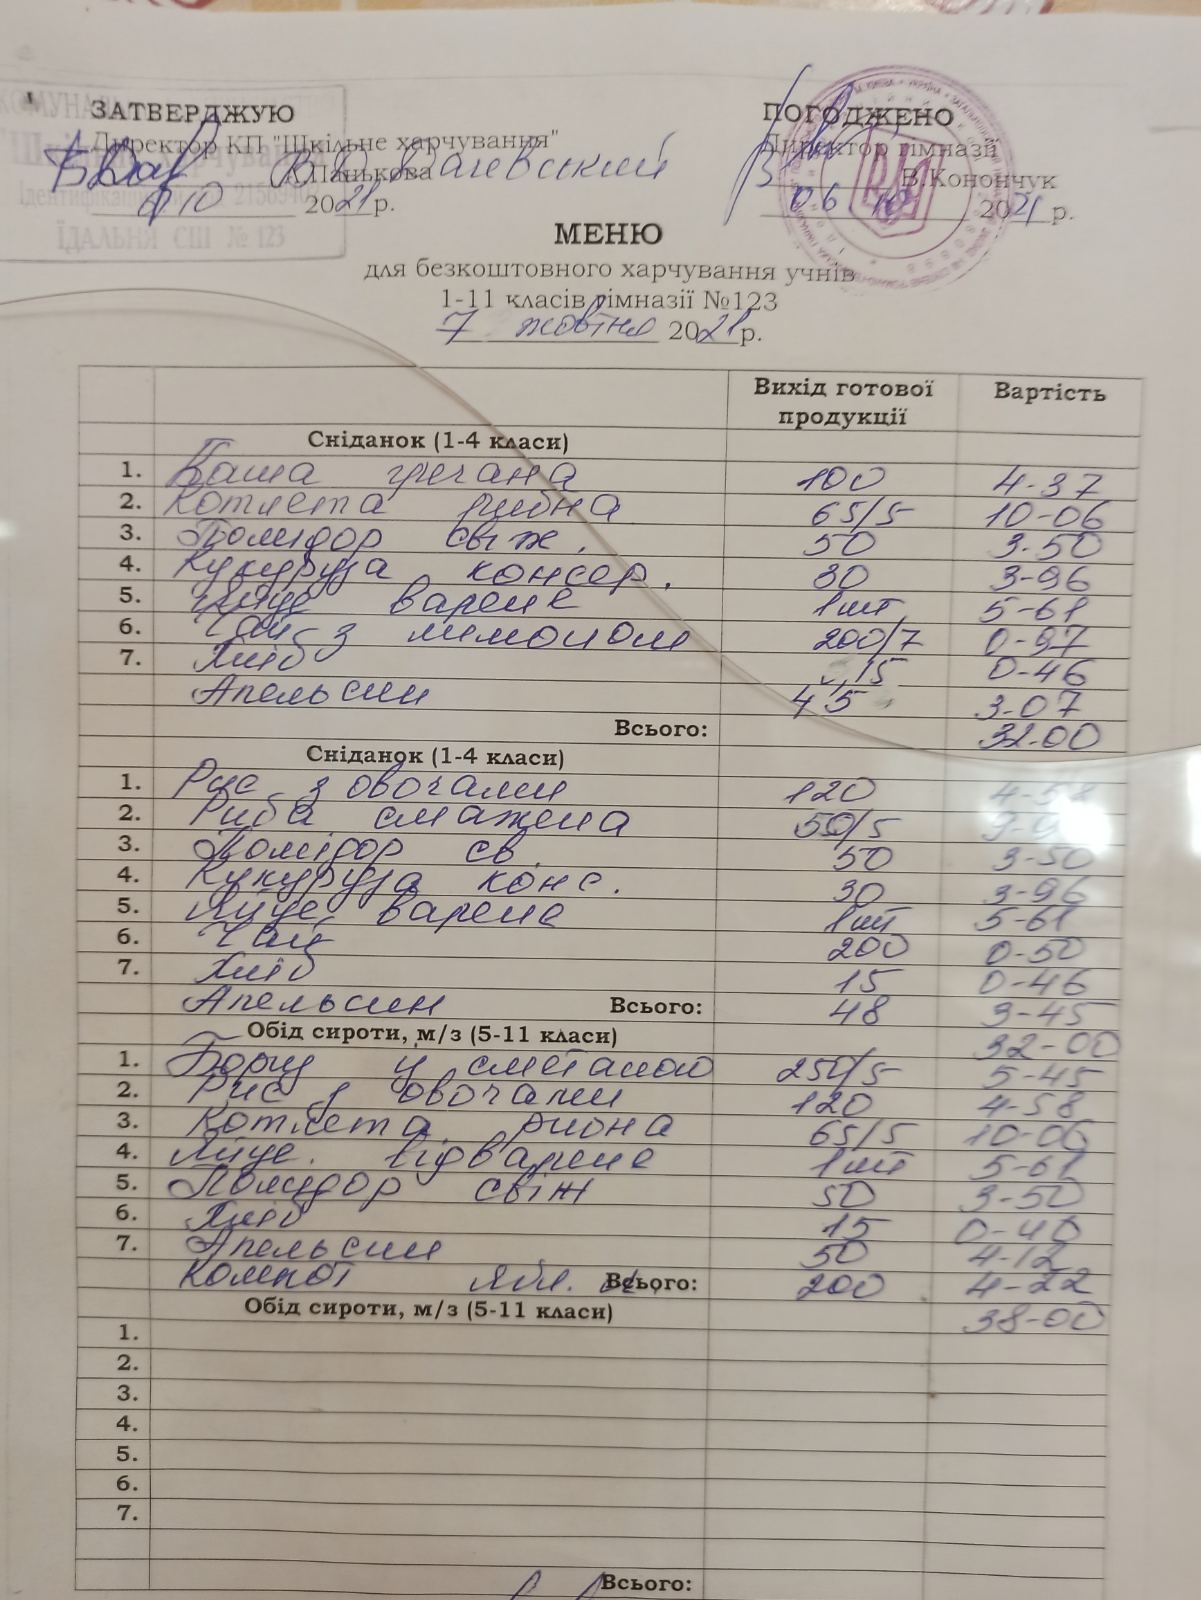 ЗАТВЕРДЖУЮ ПОГОДЖЕНО
Директор КП "Шкільне харчування" Директор гімназії
Панькова В.Конончук
10 2021р. 06 10 2021р.
ЇДАЛЬНЯ СШ № 123
МЕНЮ
для безкоштовного харчування учнів
1-11 класів гімназії №123
7 жовтня 2021р.
Вихід готової продукції Вартість
Сніданок (1-4 класи)
1. Каша гречана 100 4-37
2. Котлета рибна 65/5 10-06
3. Помідор свіж. 50 3-50
4. Кукуруза консер. 30 3-96
5. Яйце варене 1шт 5-61
6. Чай з лимоном 200/7 0-97
7. Хліб 15 0-46
Апельсин 45 3-07
Всього: 32.00
Сніданок (1-4 класи)
1. Рис з овочами 120 4-58
2. Риба смажена 50/5
3. Помідор св. 50 3-50
4. Кукуруза конс. 30 3-96
5. Яйце варене 1шт 5-61
6. Чай 200 0-50
7. Хліб 15 0-46
Апельсин Всього: 48 3-45
Обід сироти, м/з (5-11 класи) 32-00
1. Борщ у сметаною 250/5 5-45
2. Рис з овочами 120 4-58
3. Котлета рибна 65/5 10-06
4. Яйце. відварене 1шт 5-61
5. Помідор свіж 50 3-50
6. Хліб 15 0-40
7. Апельсин 50 4-12
Компот ябл. Всього: 200 4-22
Обід сироти, м/з (5-11 класи) 38-00
1.
2.
3.
4.
5.
6.
7.
Всього: